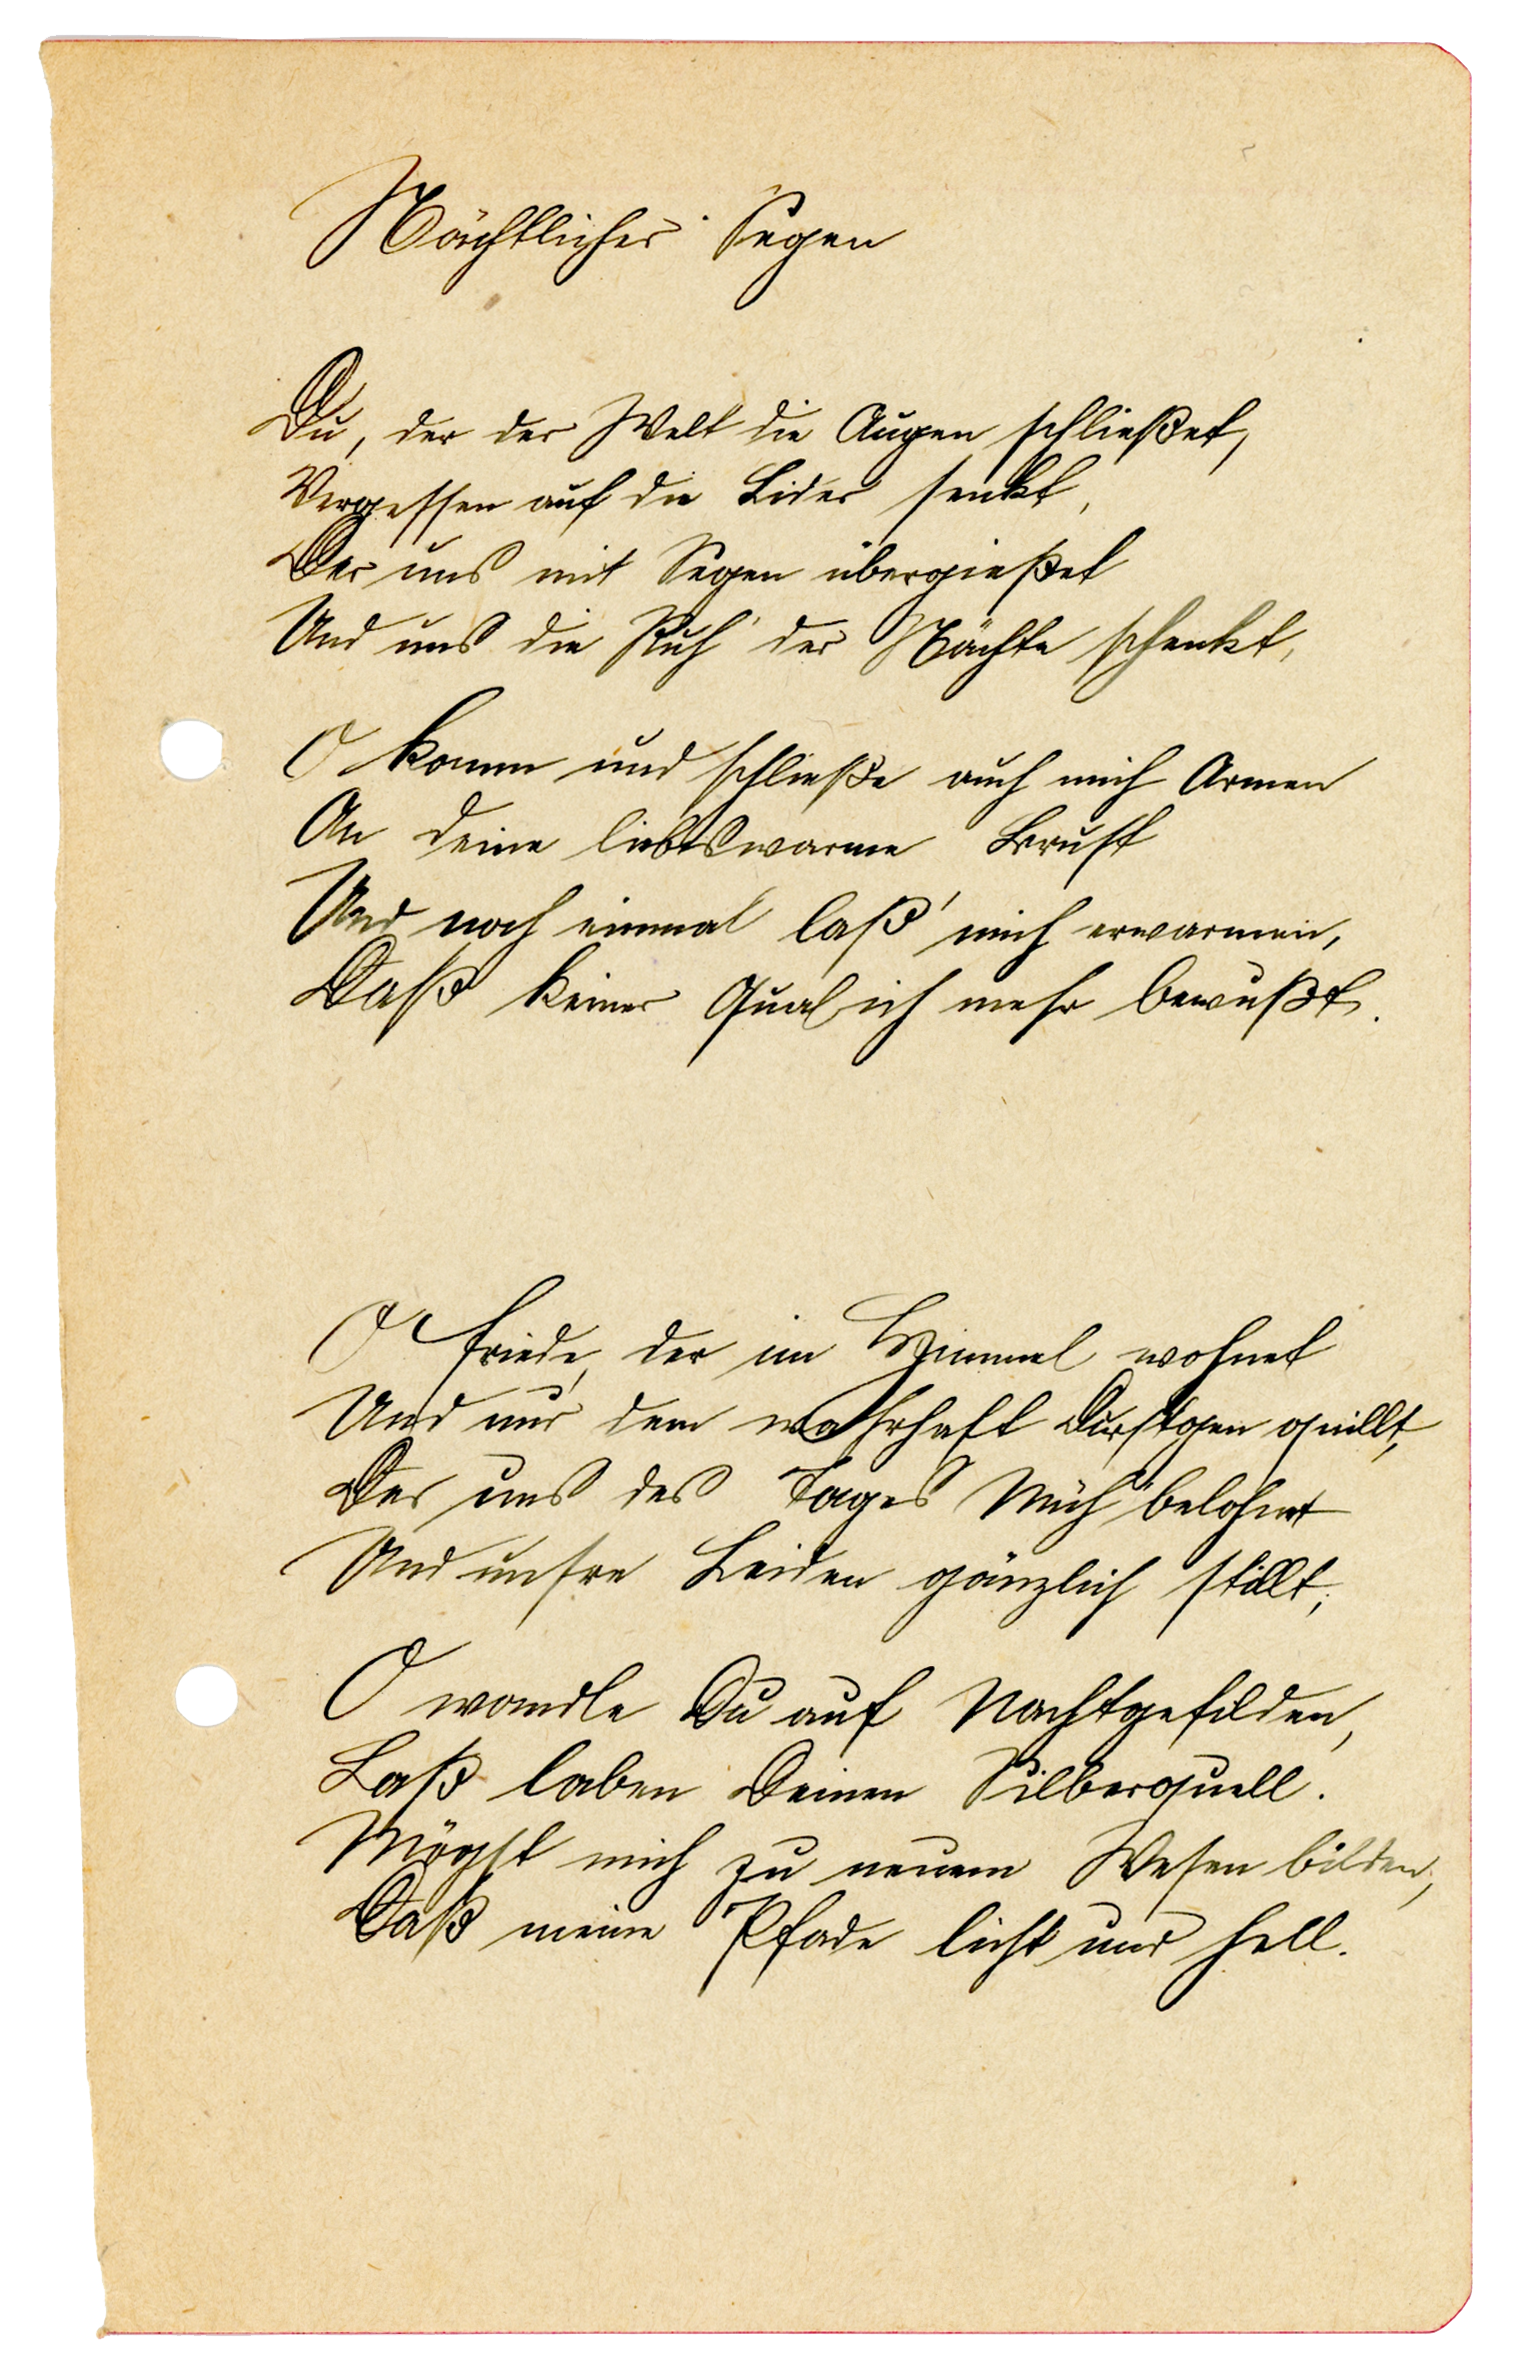 Nächtlicher Segen
Du, der der Welt die Augen schließet,
Vergessen auf die Lider senkt,
Der uns mit Segen übergießet
Und uns die Ruh' der Nächte schenkt,
O komm und schließe auch mich Armen
An deine liebeswarme Brust
Und noch einmal laß' mich erwarmen,
Daß keiner Qual ich mehr bewußt.
O Friede, der im Himmel wohnet
Und nur dem wahrhaft Durstgen quillt,
Der uns des Tages Müh' belohnet
Und unsre Leiden gänzlich stillt,
O wandle Du auf Nachtgefilden,
Laß laben Deinen Silberquell.
Mögst mich zu neuem Wesen bilden,
Daß meine Pfade licht und hell.